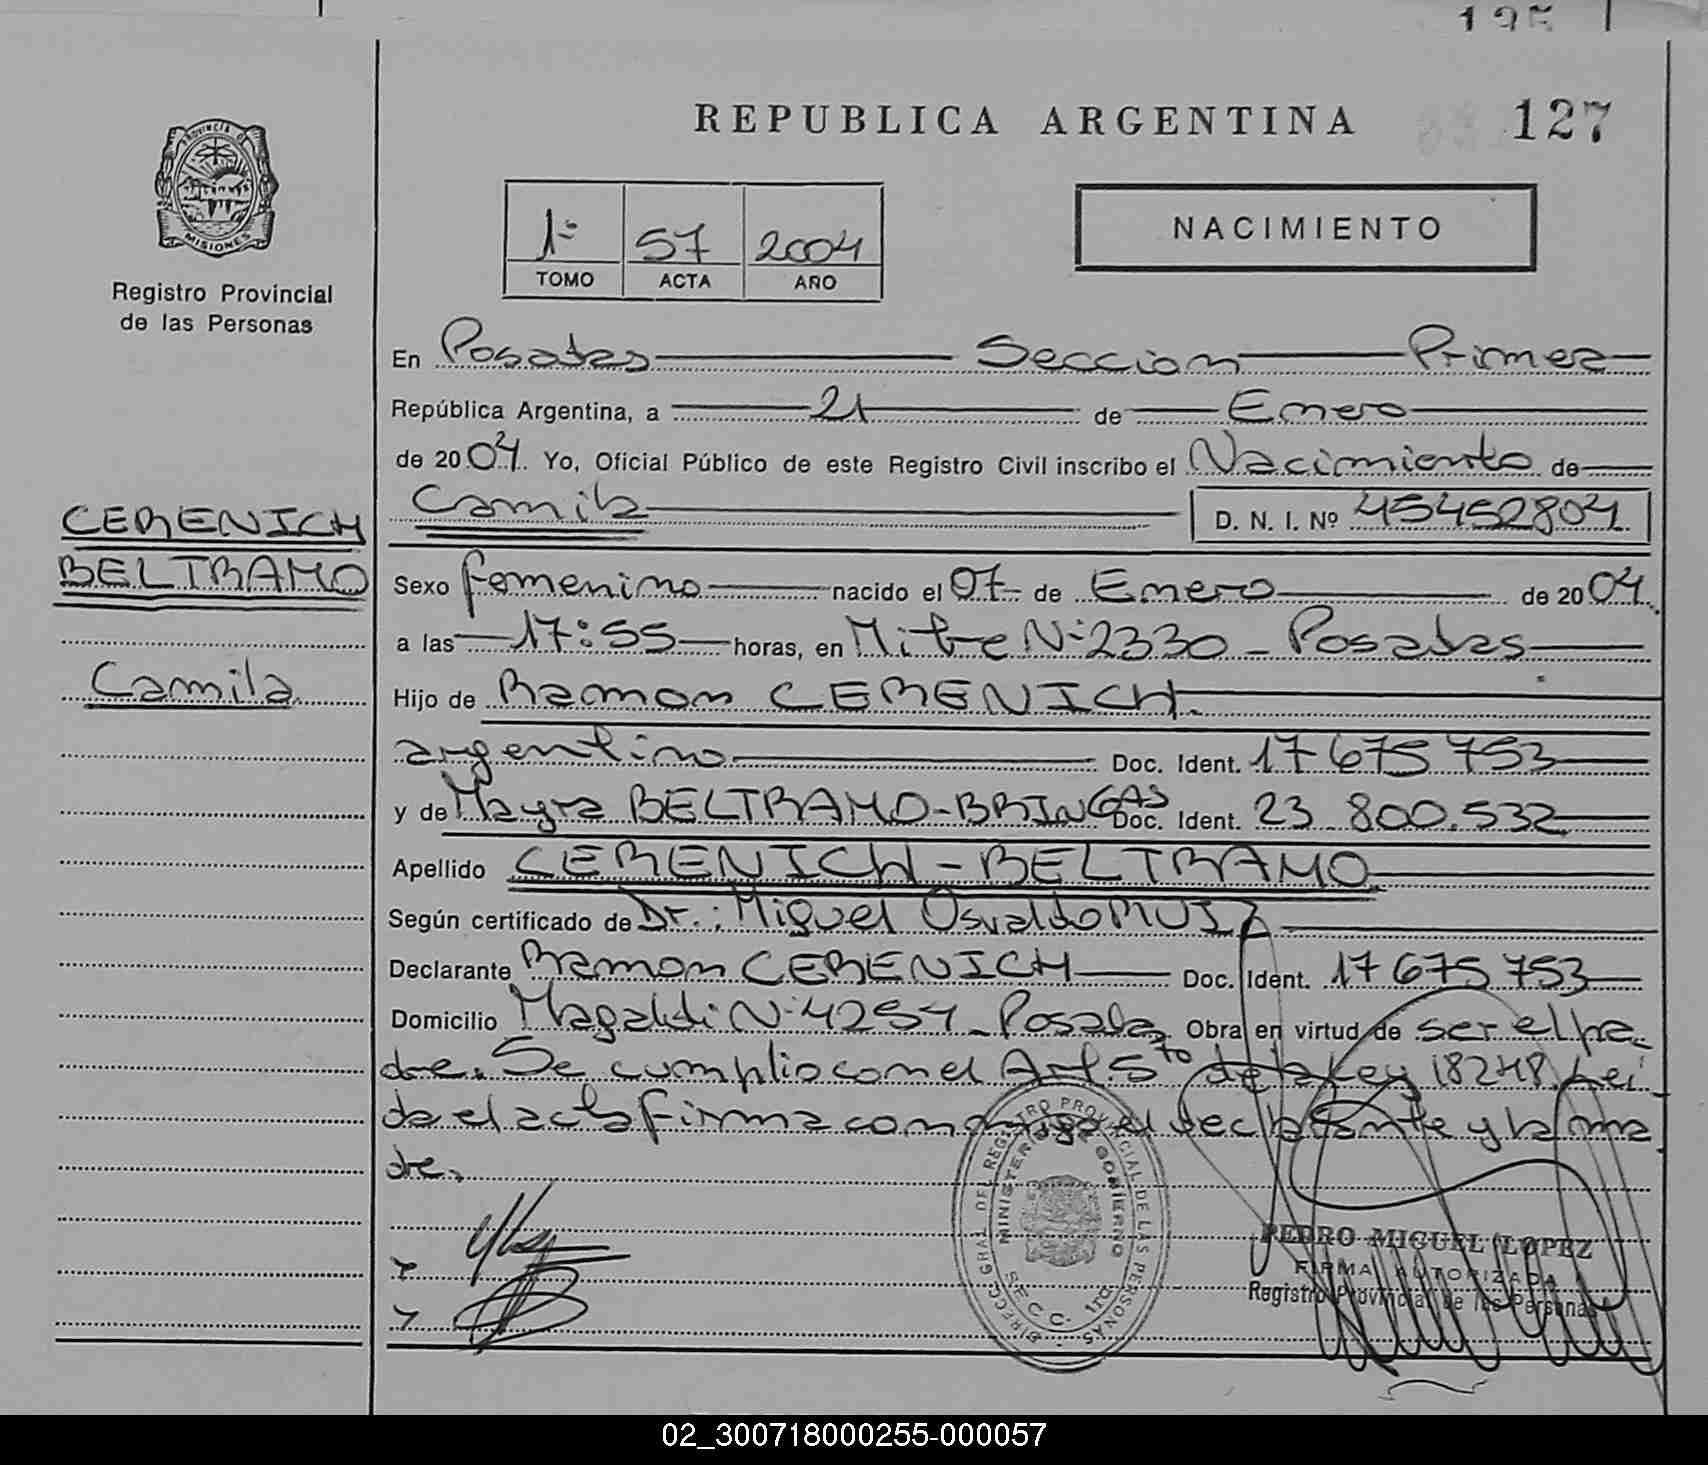 127
REPUBLICA ARGENTINA
PROVINCIA DE
MISIONES
Registro Provincial
de las Personas
NACIMIENTO
1º 57 2004
TOMO ACTA AÑO
En Posadas Seccion Primera
República Argentina, a 21 de Enero
de 2004. Yo, Oficial Público de este Registro Civil inscribo el Nacimiento de
Camila D. N. I. Nº 45452804
CERENICH
BELTRAMO
Camila
Sexo femenino nacido el 07 de Enero de 2004.
a las 17:55 horas, en Mitre Nº 2330 - Posadas
Hijo de Ramon CERENICH.
argentino Doc. Ident. 17 675 753
y de Mayra BELTRAMO-BRINGAS Doc. Ident. 23 800.532
Apellido CERENICH-BELTRAMO
Según certificado de Dr.: Miguel Osvaldo
Declarante Ramon CERENICH Doc. Ident. 17 675 753
Domicilio Magaldi Nº 4254 - Posadas Obra en virtud de ser el pa-
dre. Se cumplio con el Art. 5to de la Ley 18248. Lei-
da el acta firma conmigo el declarante y la ma
dre.
DIRECC. GRAL. DEL REGISTRO PROVINCIAL DE LAS PERSONAS
MINISTERIO DE GOBIERNO
SECC. 1ra.
PEDRO MIGUEL LOPEZ
FIRMA AUTORIZADA
Registro Provincial de las Personas
02_300718000255-000057